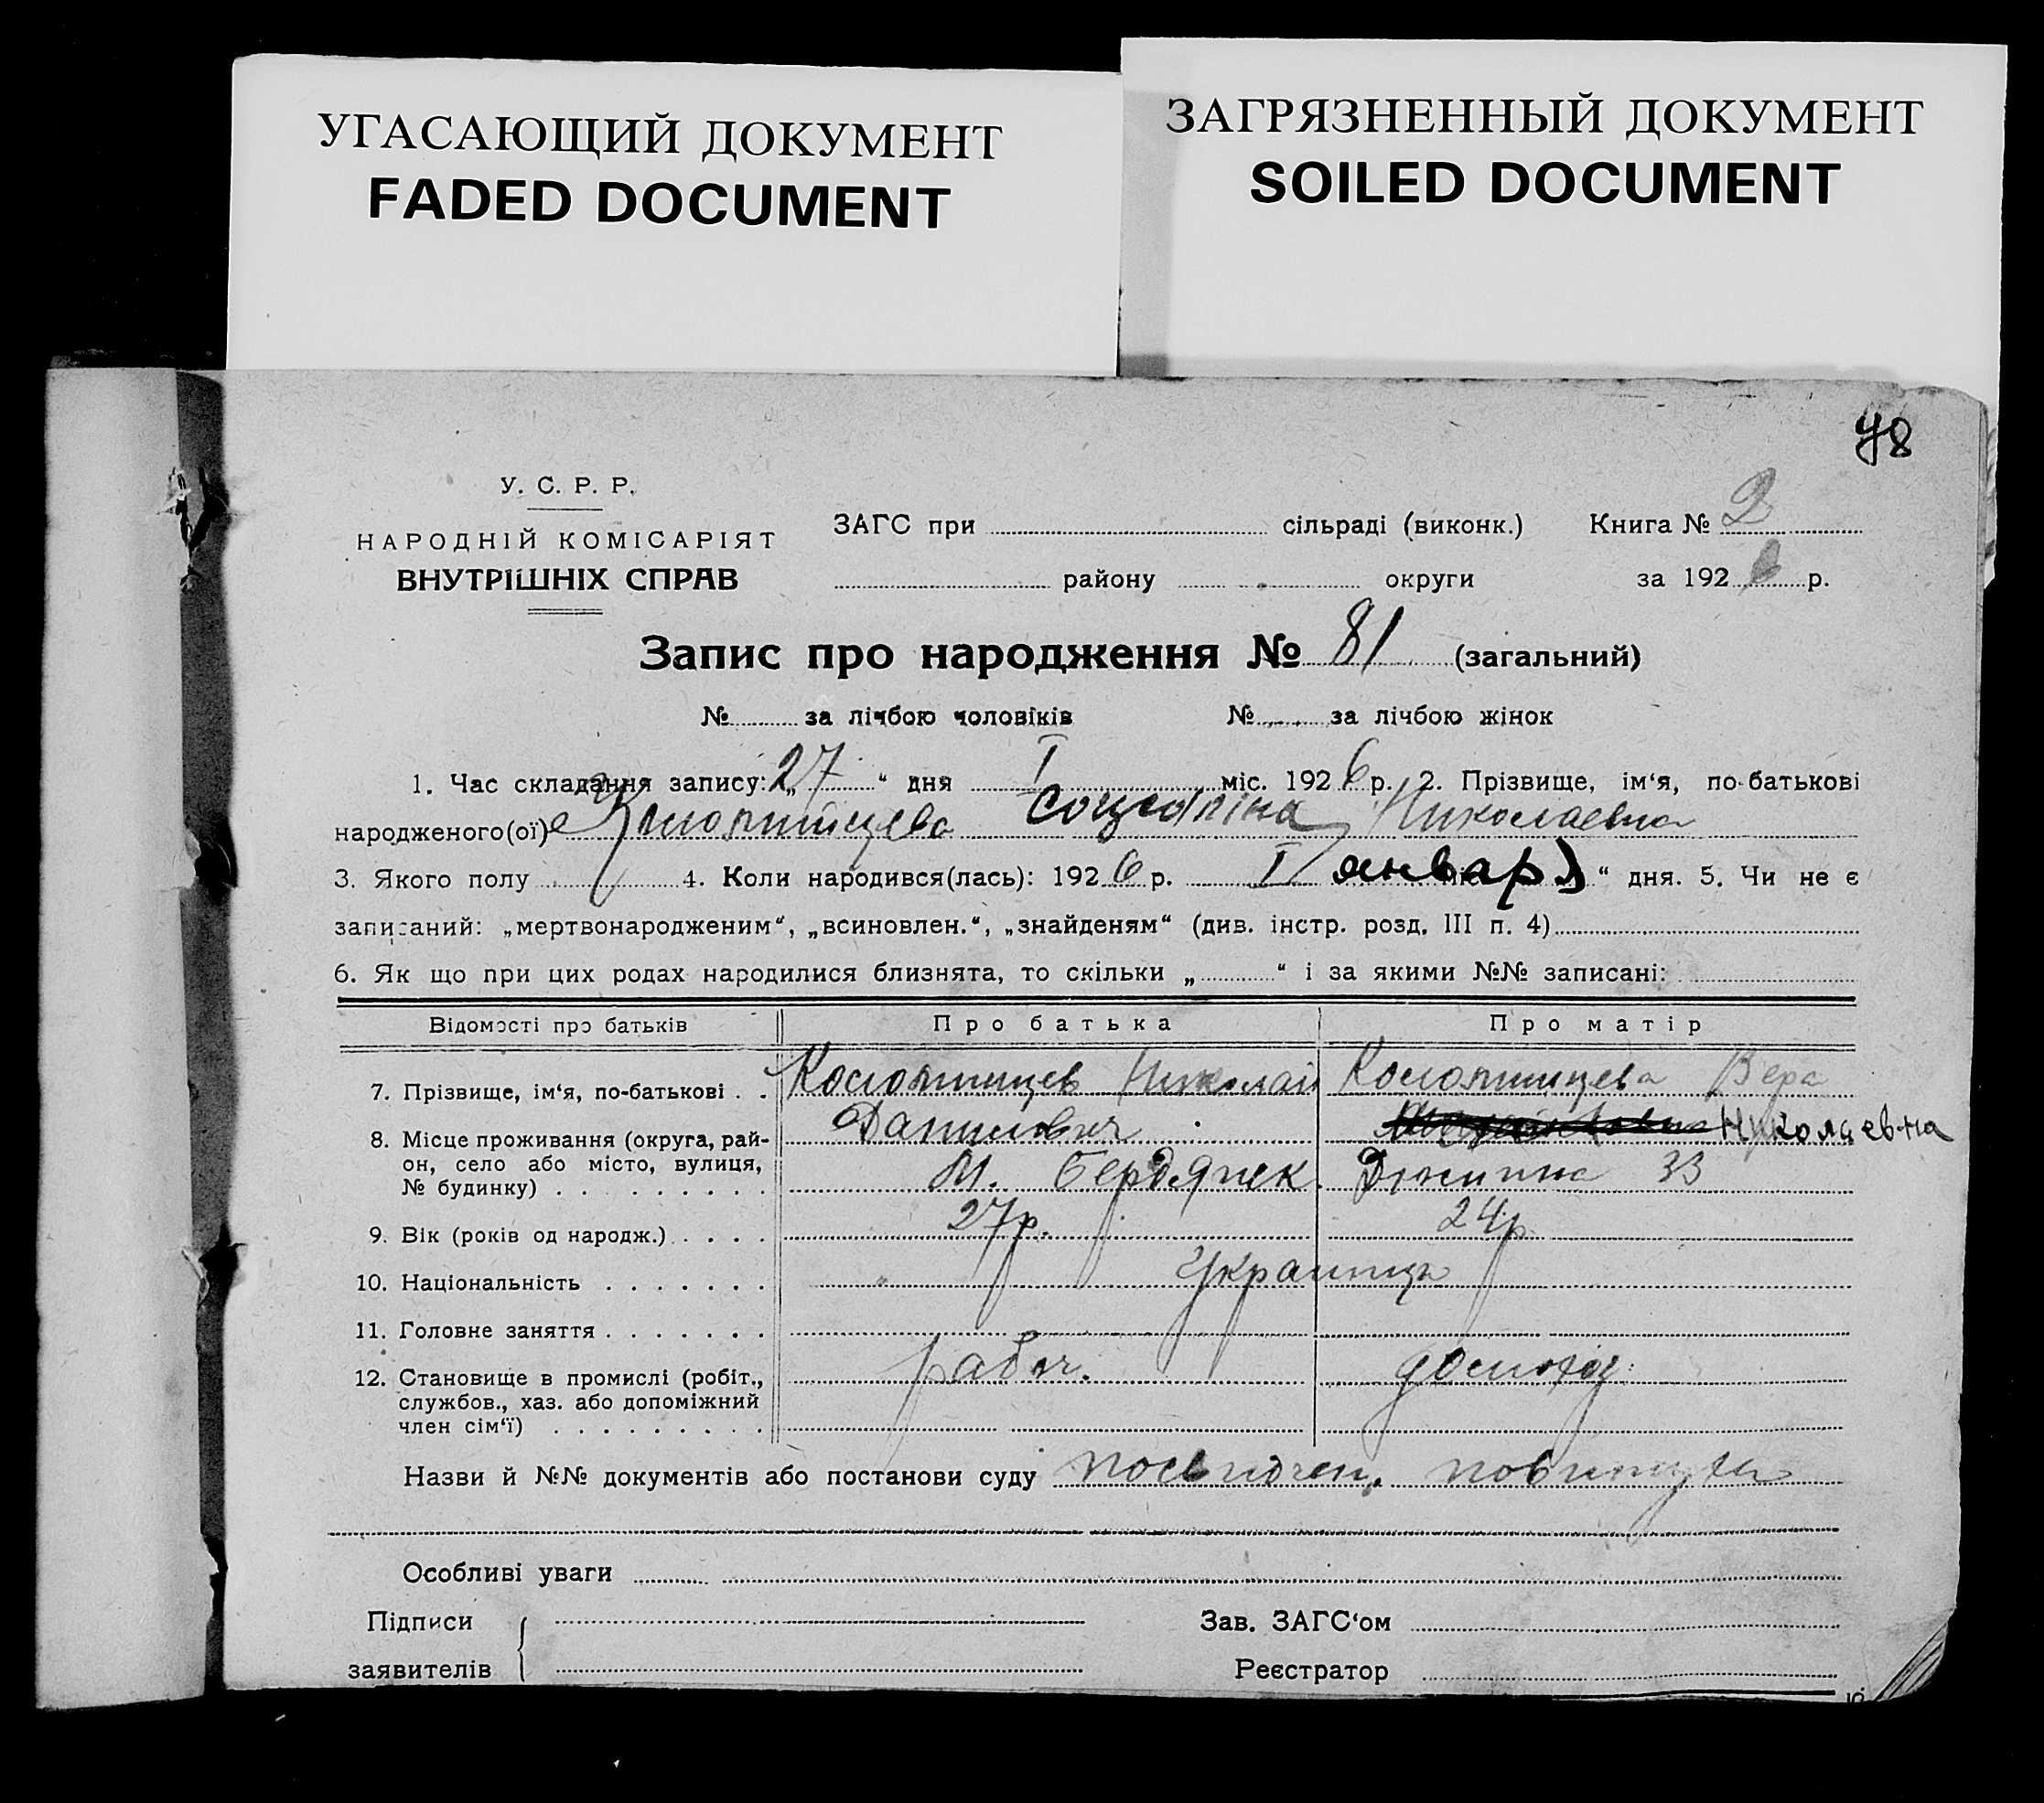 УГАСАЮЩИЙ ДОКУМЕНТ
FADED DOCUMENT
ЗАГРЯЗНЕННЫЙ ДОКУМЕНТ
SOILED DOCUMENT
48
У. С. Р. Р.
НАРОДНІЙ КОМІСАРІЯТ
ВНУТРІШНІХ СПРАВ
ЗАГС при сільраді (виконк.) Книга № 2
району округи за 1926 р.
Запис про народження № 81 (загальний)
№ за лічбою чоловіків № за лічбою жінок
1. Час складання запису: „27“ дня I міс. 1926 р. 2. Прізвище, ім‘я, по-батькові
народженого(ої) Николаевна
3. Якого полу 4. Коли народився(лась): 1926 р. I январ “ дня. 5. Чи не є
записаний: „мертвонародженим“, „всиновлен.“, „знайденям“ (див. інстр. розд. III п. 4)
6. Як що при цих родах народилися близнята, то скільки „ “ і за якими №№ записані:
Відомості про батьків Про батька Про матір
7. Прізвище, ім‘я, по-батькові Николай Вера
Данилович Николаевна
8. Місце проживання (округа, рай-
он, село або місто, вулиця,
№ будинку) М. Бердянск 33
9. Вік (років од народж.) 27р. 24р.
10. Національність Украинцы
11. Головне заняття
12. Становище в промислі (робіт., рабоч.
службов., хаз. або допоміжний
член сім‘ї)
Назви й №№ документів або постанови суду
Особливі уваги
Підписи Зав. ЗАГС‘ом
заявителів Реєстратор